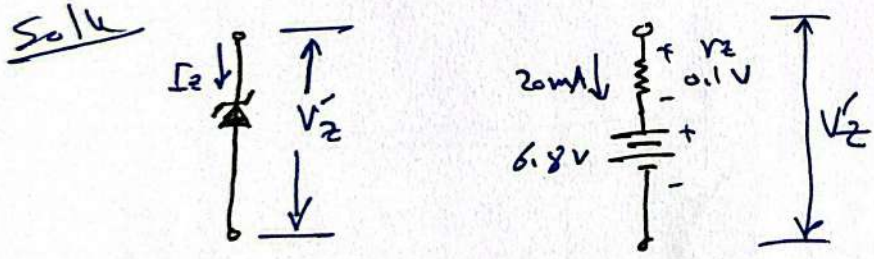 Soln
Iz V'z
20mA + rz 0.1V -
6.8V + -
V'z